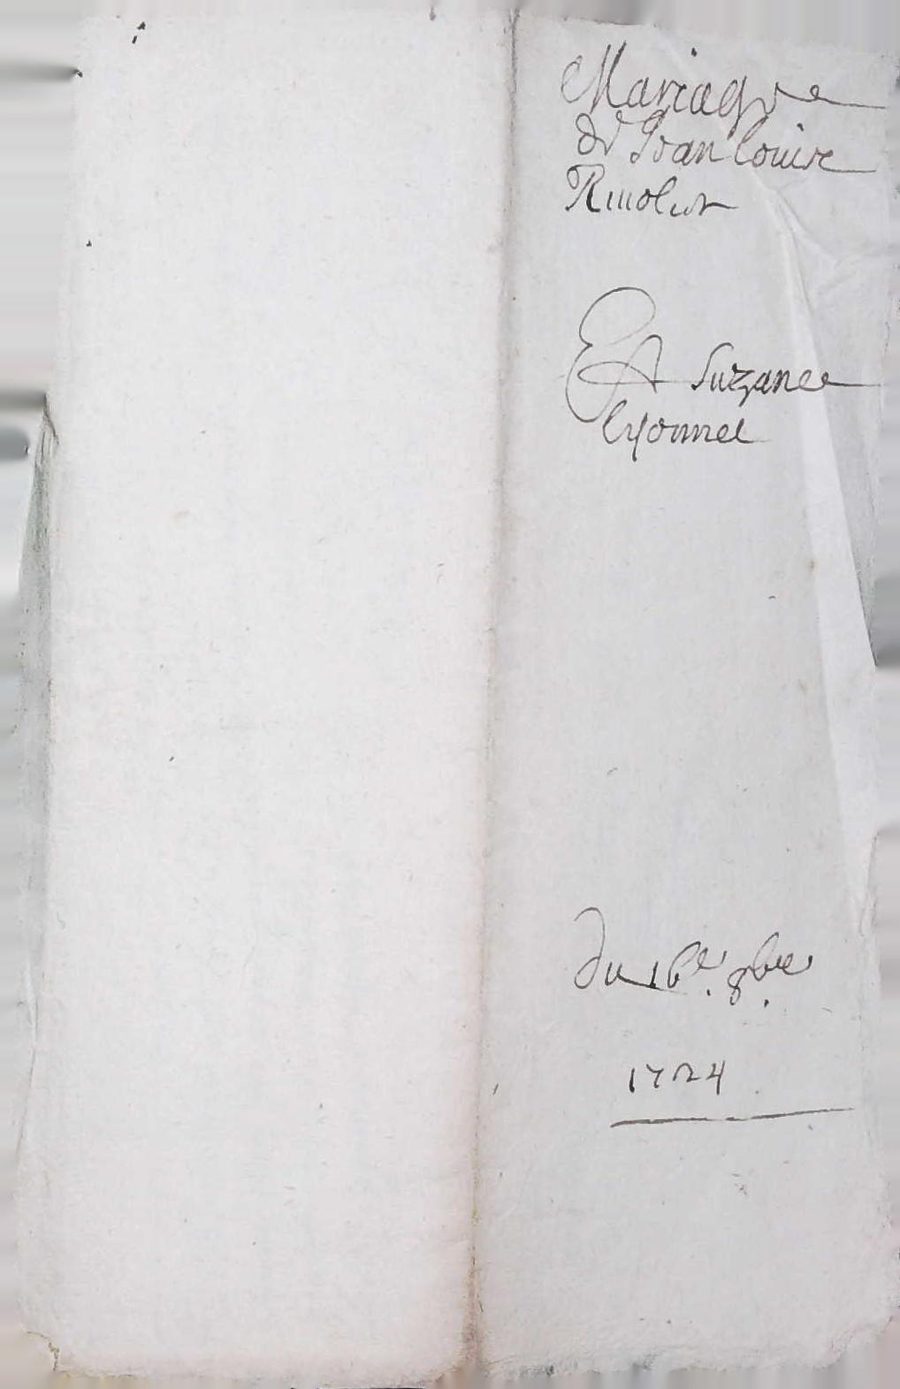 Mariage
de Jean Louis
Et Suzanne
Lyonnel
du 16e. 8bre.
1724